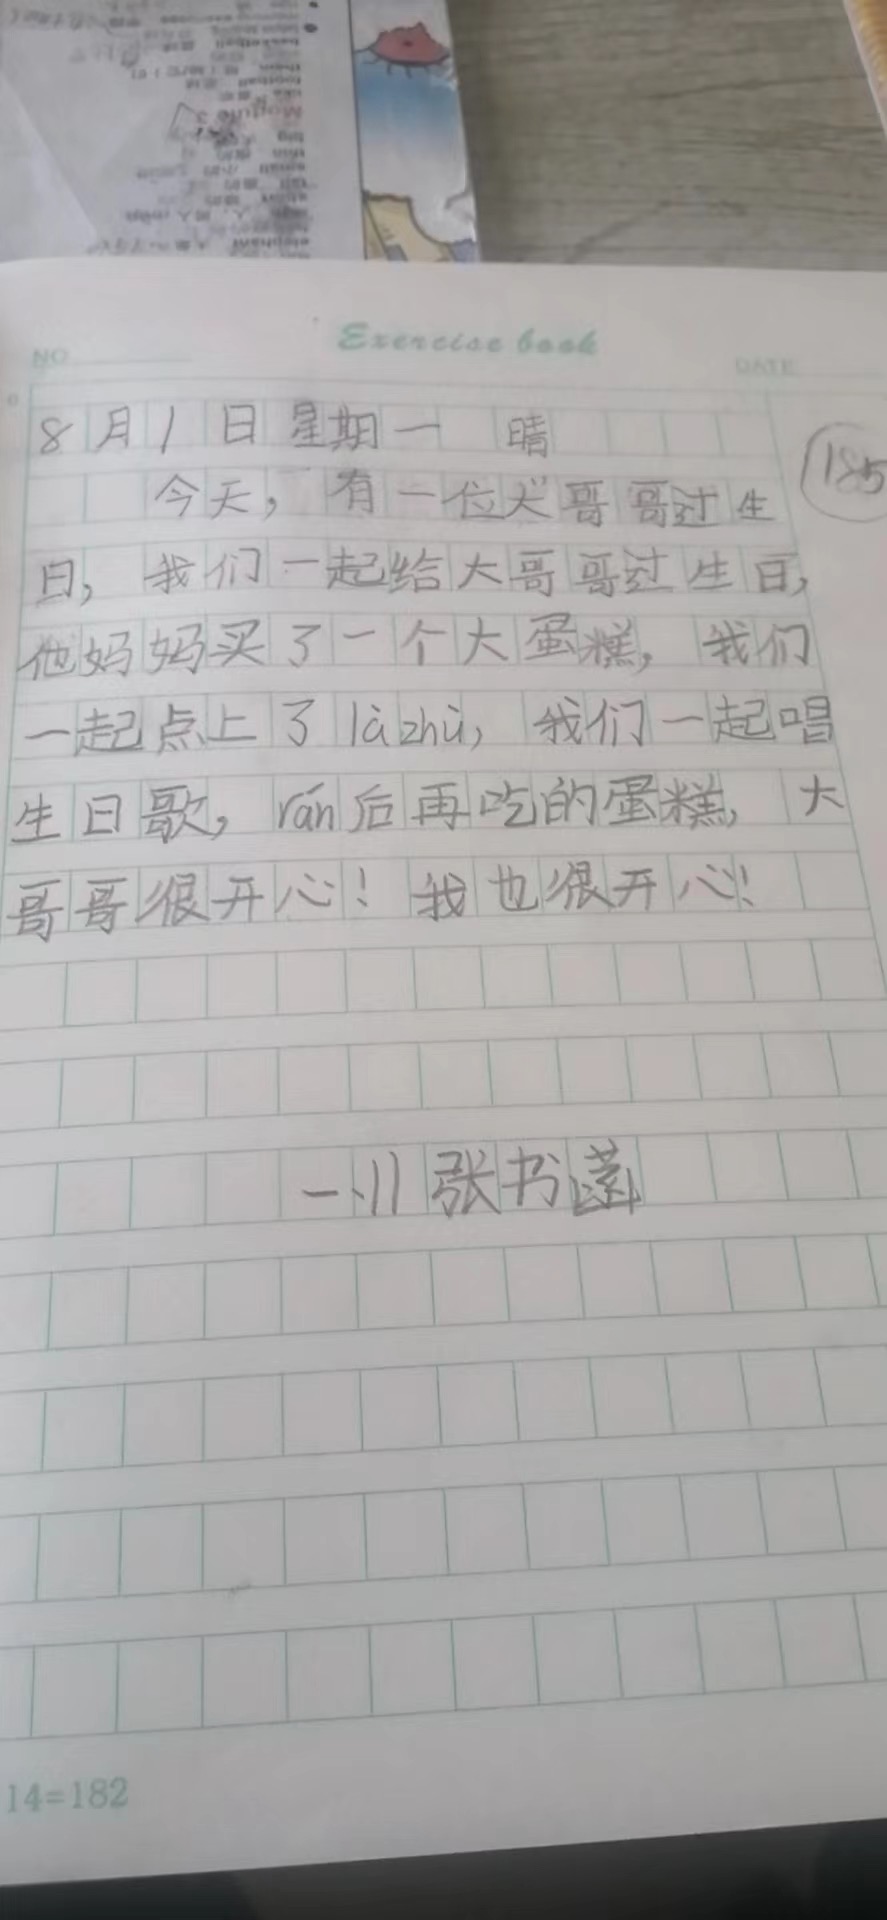 Exercise book
NO
DATE
8月1日星期一 晴
185
今天，有一位大哥哥过生
日，我们一起给大哥哥过生日，
他妈妈买了一个大蛋糕，我们
一起点上了làzhú，我们一起唱
生日歌，rán后再吃的蛋糕，大
哥哥很开心！我也很开心！
张书
14=182
Module 3
football
basketball
big
thin
small
elephant